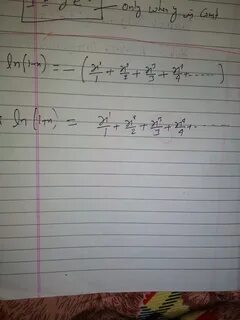 only when y is const
ln(1-x) = - ( x¹/1 + x²/2 + x³/3 + x⁴/4 + ...... )
ln(1+x) = x¹/1 + x²/2 + x³/3 + x⁴/4 + ......